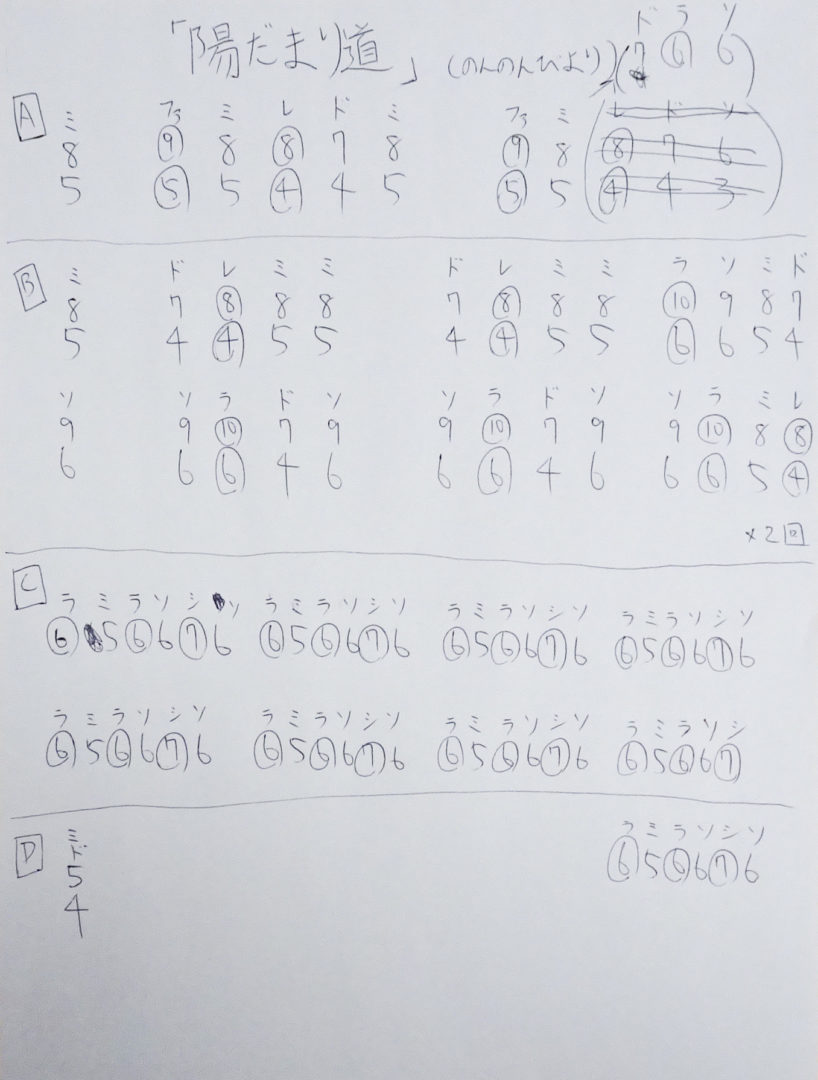 ド ラ ソ
「陽だまり道」 (のんのんびより) (7 ⑥ 6)
A ミ ファ ミ レ ド ミ ファ ミ (レ ド ソ
8 ⑨ 8 ⑧ 7 8 ⑨ 8 ⑧ 7 6
5 ⑤ 5 ④ 4 5 ⑤ 5 ④ 4 3)
B ミ ド レ ミ ミ ド レ ミ ミ ラ ソ ミ ド
8 7 ⑧ 8 8 7 ⑧ 8 8 ⑩ 9 8 7
5 4 ④ 5 5 4 ④ 5 5 ⑥ 6 5 4
ソ ソ ラ ド ソ ソ ラ ド ソ ソ ラ ミ レ
9 9 ⑩ 7 9 9 ⑩ 7 9 9 ⑩ 8 ⑧
6 6 ⑥ 4 6 6 ⑥ 4 6 6 ⑥ 5 ④
×2回
C ラ ミ ラ ソ シ ソ ラ ミ ラ ソ シ ソ ラ ミ ラ ソ シ ソ ラ ミ ラ ソ シ ソ
⑥ 5 ⑥ 6 ⑦ 6 ⑥ 5 ⑥ 6 ⑦ 6 ⑥ 5 ⑥ 6 ⑦ 6 ⑥ 5 ⑥ 6 ⑦ 6
ラ ミ ラ ソ シ ソ ラ ミ ラ ソ シ ソ ラ ミ ラ ソ シ ソ ラ ミ ラ ソ シ
⑥ 5 ⑥ 6 ⑦ 6 ⑥ 5 ⑥ 6 ⑦ 6 ⑥ 5 ⑥ 6 ⑦ 6 ⑥ 5 ⑥ 6 ⑦
D ミ ラ ミ ラ ソ シ ソ
ド ⑥ 5 ⑥ 6 ⑦ 6
5
4